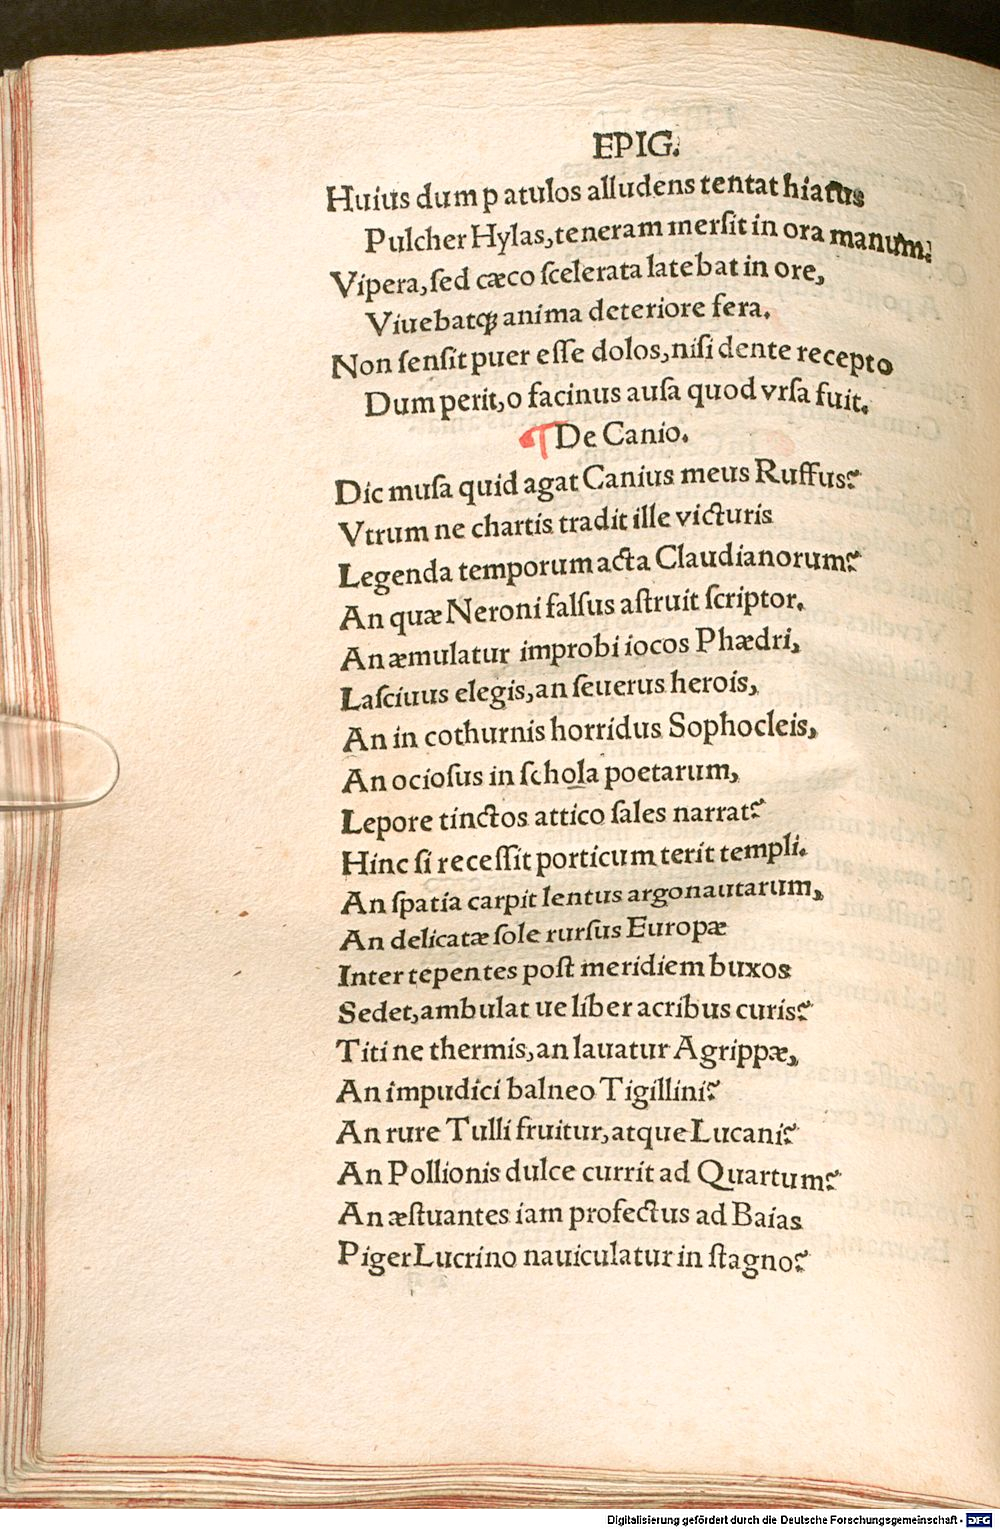 EPIG.
Huius dum patulos alludens tentat hiatus
Pulcher Hylas, teneram merſit in ora manum.
Vipera, ſed cæco ſcelerata latebat in ore,
Viuebatq; anima deteriore fera.
Non ſenſit puer eſſe dolos, niſi dente recepto
Dum perit, o facinus auſa quod vrſa fuit.
¶ De Canio.
Dic muſa quid agat Canius meus Ruffus?
Vtrum ne chartis tradit ille victuris
Legenda temporum acta Claudianorum?
An quæ Neroni falſus aſtruit ſcriptor.
An æmulatur improbi iocos Phædri,
Laſciuus elegis, an ſeuerus herois,
An in cothurnis horridus Sophocleis,
An ocioſus in ſchola poetarum,
Lepore tinctos attico ſales narrat?
Hinc ſi receſſit porticum terit templi.
An ſpatia carpit lentus argonautarum,
An delicatæ ſole rurſus Europæ
Inter tepentes poſt meridiem buxos
Sedet, ambulat ue liber acribus curis?
Titi ne thermis, an lauatur Agrippæ,
An impudici balneo Tigillini?
An rure Tulli fruitur, atque Lucani?
An Pollionis dulce currit ad Quartum?
An æſtuantes iam profectus ad Baias
Piger Lucrino nauiculatur in ſtagno?
Digitalisierung gefördert durch die Deutsche Forschungsgemeinschaft - DFG